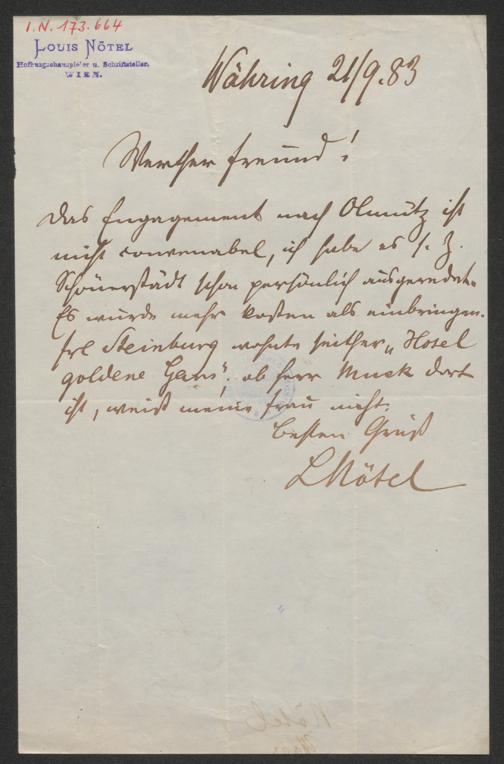 I.N. 173.664
LOUIS NÖTEL
Hofburgschauspieler u. Schriftsteller,
WIEN.
Währing 21/9.83
Werther Freund!
Das Engagement nach Olmütz ist
nicht convenabel, ich habe es s. Z.
schon persönlich ausgeredet.
Es würde mehr kosten als einbringen.
Frl Steinburg wohnte seither „Hotel
goldene Gans", ob Herr Muck dort
ist, weiß meine Frau nicht.
Besten Gruß
LNötel